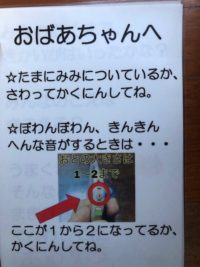 おばあちゃんへ
☆たまにみみについているか、
さわってかくにんしてね。
☆ぽわんぽわん、きんきん
へんな音がするときは・・・
おとの大きさは
1~2まで
ここが1から2になってるか、
かくにんしてね。